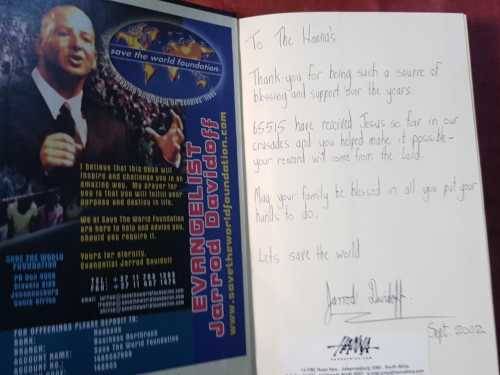 save the world foundation
I believe that this book will
inspire and challenge you in an
amazing way. My prayer for
you is that you will fulfil your
purpose and destiny in life.
We at Save The World Foundation
are here to help and advise you,
should you require it.
Yours for eternity,
Evangelist Jarrod Davidoff
SAVE THE WORLD
FOUNDATION
Johannesburg
South Africa
EVANGELIST
Jarrod Davidoff
www.savetheworldfoundation.com
FOR OFFERINGS PLEASE DEPOSIT TO:
BANK:
BRANCH:
ACCOUNT NAME: Save The World Foundation
ACCOUNT NO.:
To The
Thank-you for being such a source of
blessing and support over the years.
65515 have received Jesus so far in our
crusades and you helped make it possible-
your reward will come from the Lord.
May your family be blessed in all you put your
hands to do.
Lets save the world
Jarrod Davidoff.
Sept. 2002